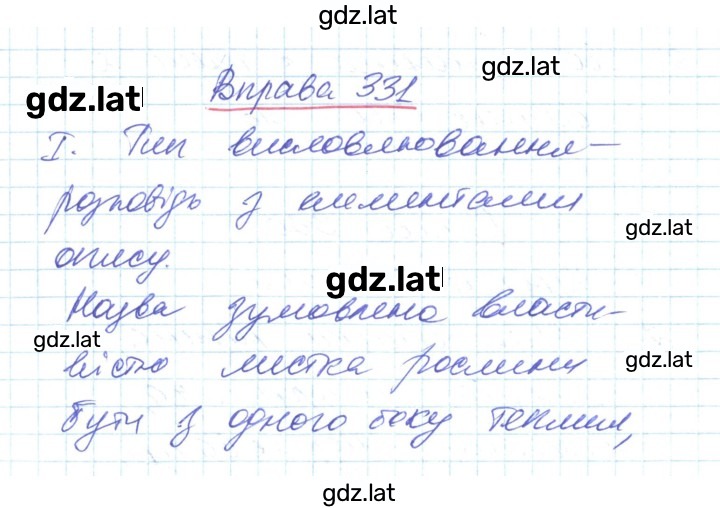 gdz.lat
gdz.lat
gdz.lat
Вправа 331
І. Тип висловлювання –
розповідь з елементами
gdz.lat
опису.
gdz.lat
Назва зумовлена власти-
gdz.lat
вістю листка рослини
gdz.lat
бути з одного боку теплим,
gdz.lat